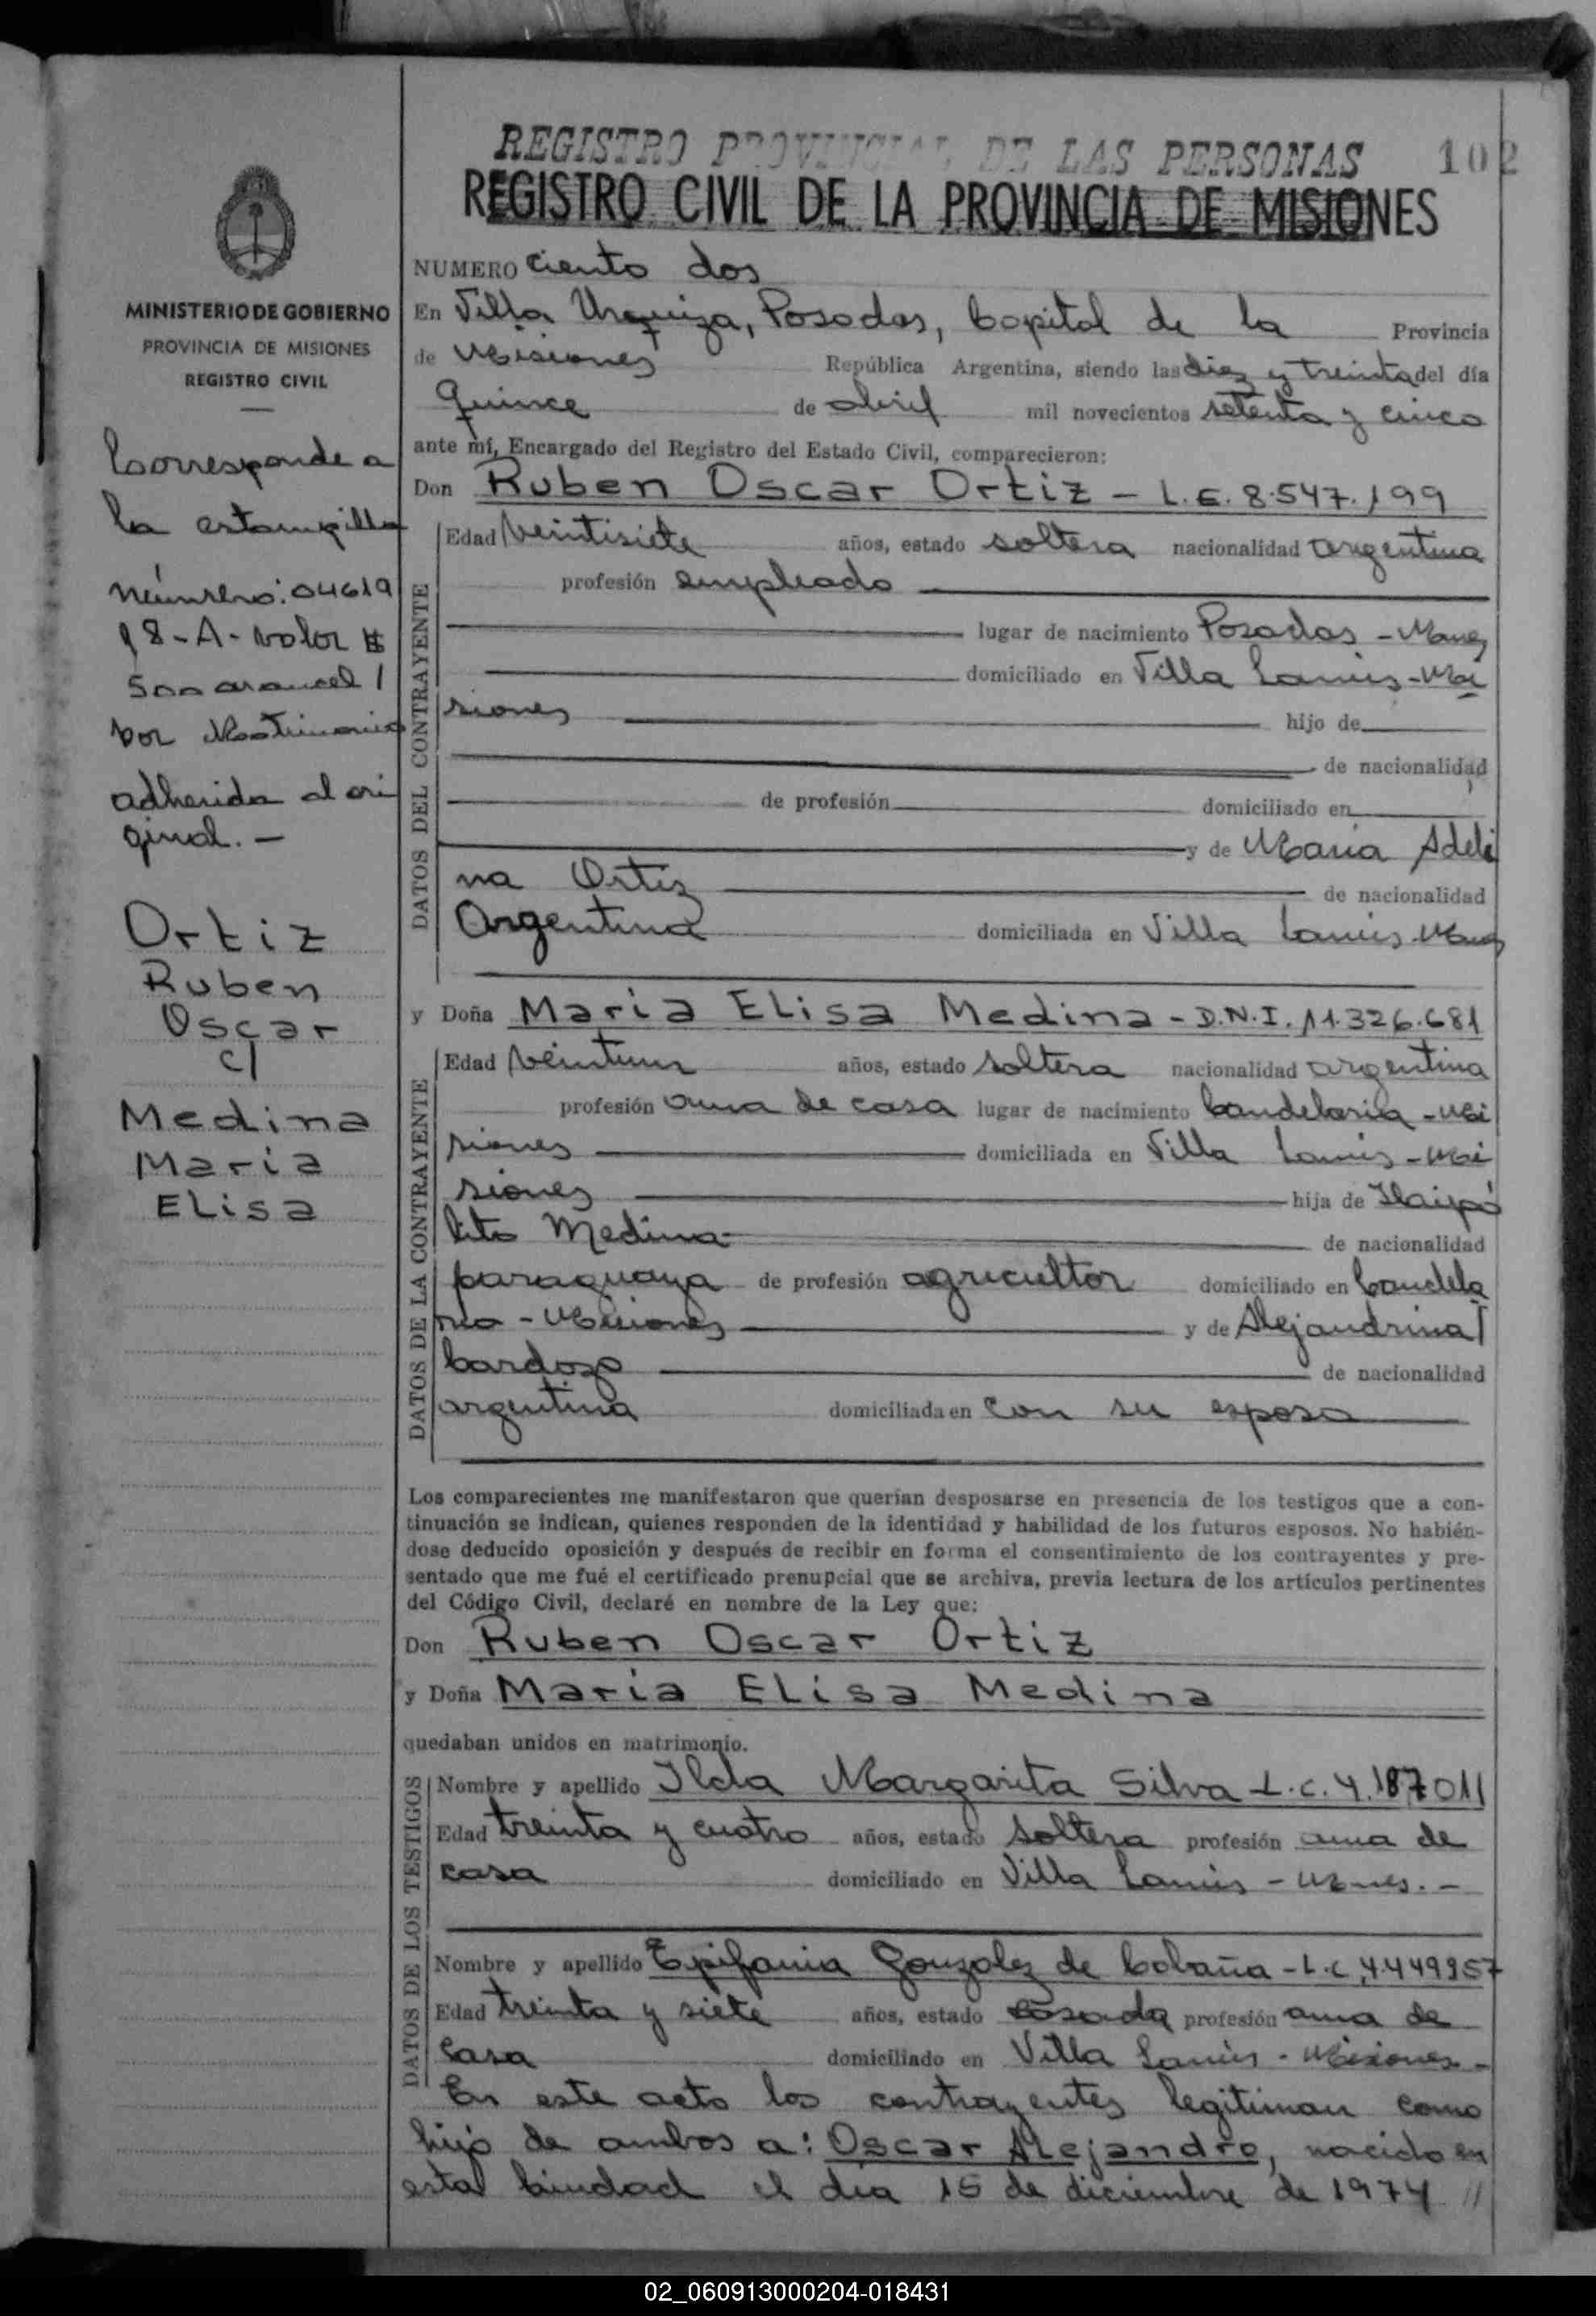 REGISTRO PROVINCIAL DE LAS PERSONAS 102
REGISTRO CIVIL DE LA PROVINCIA DE MISIONES
MINISTERIO DE GOBIERNO
PROVINCIA DE MISIONES
REGISTRO CIVIL
Corresponde a
la estampilla
número: 04619
18-A- valor $
500 arancel
por Matrimonio
adherida al ori
ginal. —
Ortiz
Ruben
Oscar
c/
Medina
Maria
ELisa
NUMERO ciento dos
En Villa Urquiza, Posadas, Capital de la Provincia
de Misiones República Argentina, siendo las diez y treinta del día
quince de abril mil novecientos setenta y cinco
ante mí, Encargado del Registro del Estado Civil, comparecieron:
Don Ruben Oscar Ortiz - L.E. 8.547.199
DATOS DEL CONTRAYENTE
Edad veintisiete años, estado soltera nacionalidad argentina
profesión empleado
lugar de nacimiento Posadas - Mnes
domiciliado en Villa Lanús - Mi
siones hijo de
de nacionalidad
de profesión domiciliado en
y de María Adeli
na Ortiz de nacionalidad
Argentina domiciliada en Villa Lanús - Mnes
y Doña Maria ELisa Medina - D.N.I. 11.326.681
DATOS DE LA CONTRAYENTE
Edad veintiun años, estado soltera nacionalidad argentina
profesión ama de casa lugar de nacimiento Candelaria - Mi
siones domiciliada en Villa Lanús - Mi
siones hija de
lito Medina de nacionalidad
paraguaya de profesión agricultor domiciliado en Candela
ria - Misiones y de Alejandrina
Cardozo de nacionalidad
argentina domiciliada en con su esposo
Los comparecientes me manifestaron que querían desposarse en presencia de los testigos que a con-
tinuación se indican, quienes responden de la identidad y habilidad de los futuros esposos. No habién-
dose deducido oposición y después de recibir en forma el consentimiento de los contrayentes y pre-
sentado que me fué el certificado prenupcial que se archiva, previa lectura de los artículos pertinentes
del Código Civil, declaré en nombre de la Ley que:
Don Ruben Oscar Ortiz
y Doña Maria ELisa Medina
quedaban unidos en matrimonio.
DATOS DE LOS TESTIGOS
Nombre y apellido Ilda Margarita Silva L.C. 4.187.011
Edad treinta y cuatro años, estado soltera profesión ama de
casa domiciliado en Villa Lanús - Mnes. -
Nombre y apellido Epifania Gonzalez de Cabaña - L.C. 4.449957
Edad treinta y siete años, estado casada profesión ama de
Casa domiciliado en Villa Lanús - Misiones -
En este acto los contrayentes legitiman como
hijo de ambos a: Oscar Alejandro, nacido en
esta Ciudad el día 15 de diciembre de 1974 //
02_060913000204-018431